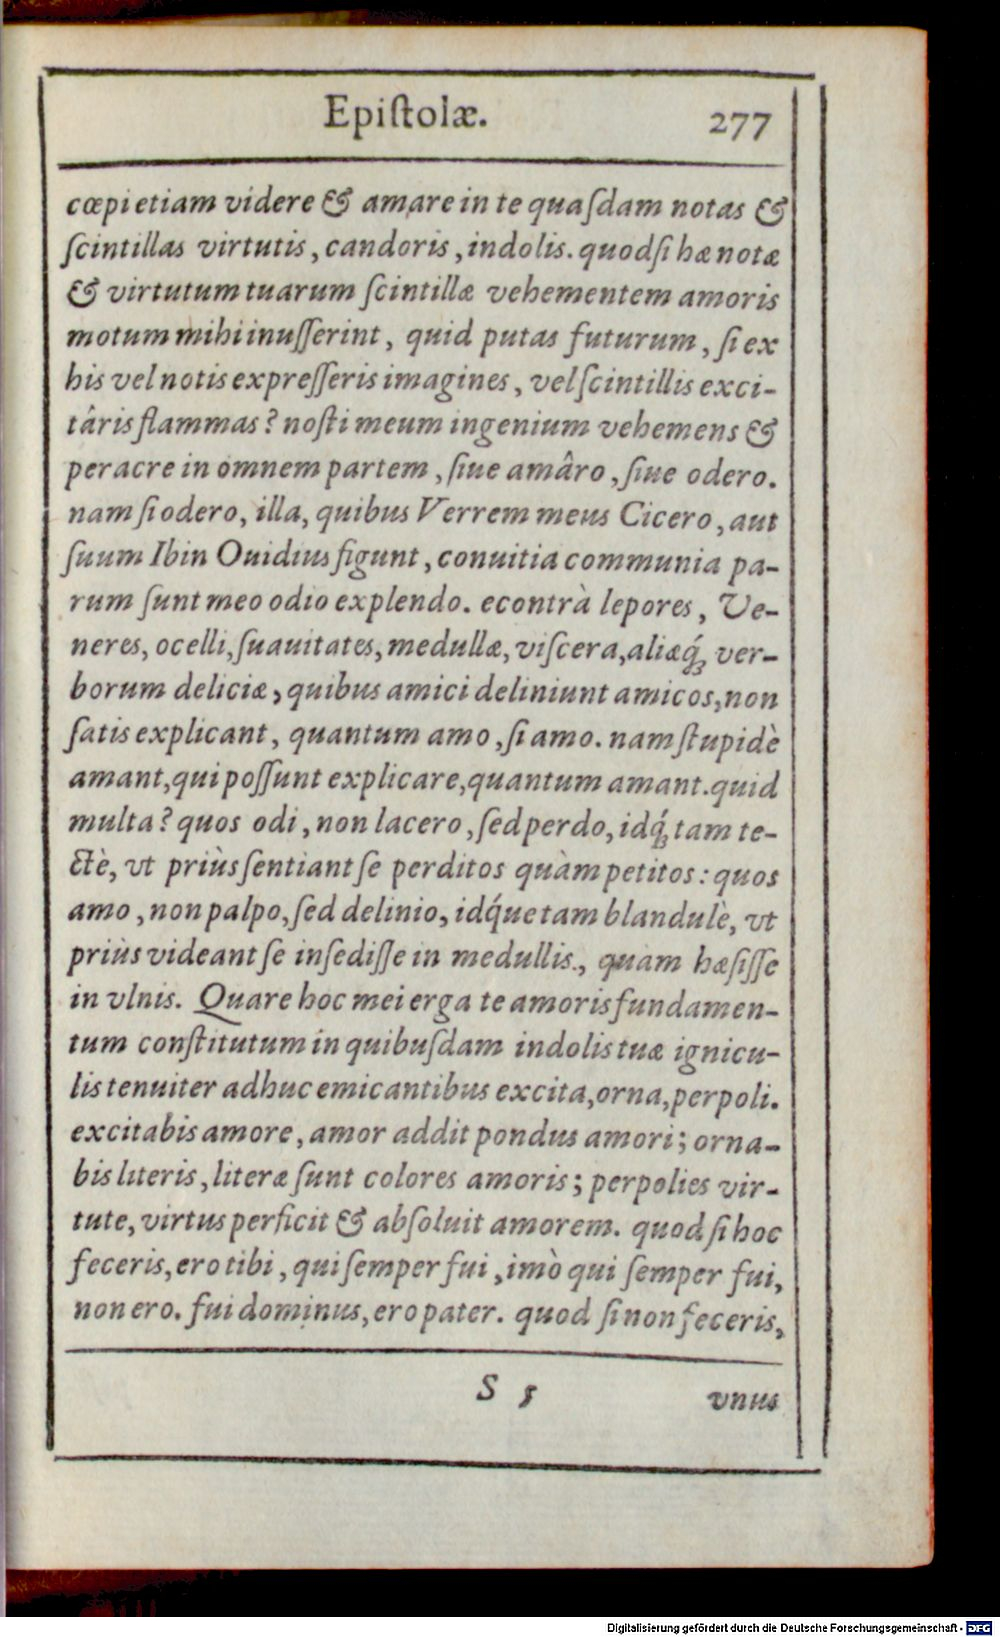 Epiſtolæ. 277
cœpi etiam videre & amare in te quaſdam notas &
ſcintillas virtutis, candoris, indolis. quodſi hæ notæ
& virtutum tuarum ſcintillæ vehementem amoris
motum mihi inuſſerint, quid putas futurum, ſi ex
his vel notis expreſſeris imagines, vel ſcintillis exci-
târis flammas? noſti meum ingenium vehemens &
peracre in omnem partem, ſiue amâro, ſiue odero.
nam ſi odero, illa, quibus Verrem meus Cicero, aut
ſuum Ibin Ouidius figunt, conuitia communia pa-
rum ſunt meo odio explendo. econtrà lepores, Ve-
neres, ocelli, ſuauitates, medullæ, viſcera, aliæq́; ver-
borum deliciæ, quibus amici deliniunt amicos, non
ſatis explicant, quantum amo, ſi amo. nam ſtupidè
amant, qui poſſunt explicare, quantum amant. quid
multa? quos odi, non lacero, ſed perdo, idq́; tam te-
ctè, vt priùs ſentiant ſe perditos quàm petitos: quos
amo, non palpo, ſed delinio, idq́ue tam blandulè, vt
priùs videant ſe inſediſſe in medullis., quam hæſiſſe
in vlnis. Quare hoc mei erga te amoris fundamen-
tum conſtitutum in quibuſdam indolis tuæ ignicu-
lis tenuiter adhuc emicantibus excita, orna, perpoli.
excitabis amore, amor addit pondus amori; orna-
bis literis, literæ ſunt colores amoris; perpolies vir-
tute, virtus perficit & abſoluit amorem. quod ſi hoc
feceris, ero tibi, qui ſemper fui, imò qui ſemper fui,
non ero. fui dominus, ero pater. quod ſi non feceris,
S 5 vnus
Digitalisierung gefördert durch die Deutsche Forschungsgemeinschaft - DFG